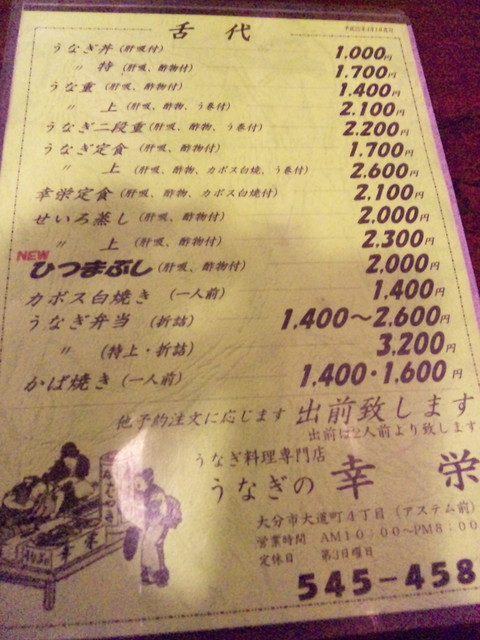 舌代
うなぎ丼(肝吸付) 1.000円
〃 特(肝吸、酢物付) 1.700円
うな重(肝吸、酢物付) 1.400円
〃 上(肝吸、酢物、う巻付) 2.100円
うなぎ二段重(肝吸、酢物、う巻付) 2.200円
うなぎ定食(肝吸、酢物付) 1.700円
〃 上(肝吸、酢物、カボス白焼、う巻付) 2.600円
幸栄定食(肝吸、酢物、カボス白焼付) 2.100円
せいろ蒸し(肝吸、酢物付) 2.000円
〃 上(肝吸、酢物付) 2.300円
NEW
ひつまぶし(肝吸、酢物付) 2.000円
カボス白焼き(一人前) 1.400円
うなぎ弁当(折詰) 1.400〜2.600円
〃 (特上・折詰) 3.200円
かば焼き(一人前) 1.400・1.600円
他予約注文に応じます 出前致します
出前は2人前より致します
うなぎ料理専門店
うなぎの 幸栄
大分市大道町4丁目(アステム前)
営業時間 AM10:00〜PM8:00
定休日 第3日曜日
545-458
幸栄